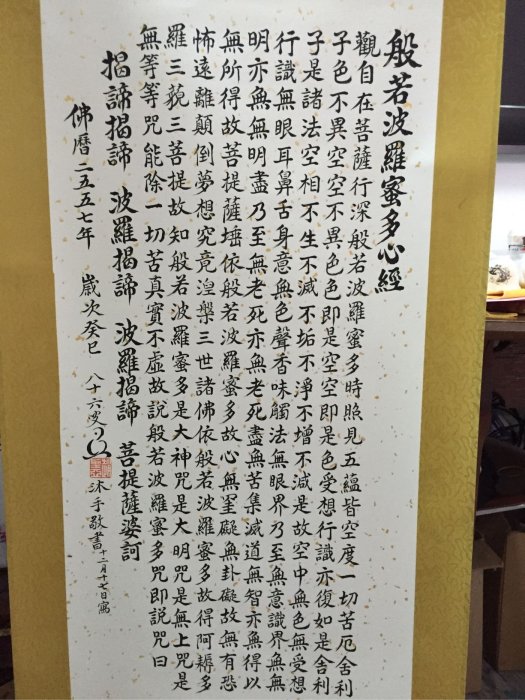 般若波羅蜜多心經
觀自在菩薩行深般若波羅蜜多時照見五蘊皆空度一切苦厄舍利
子色不異空空不異色色即是空空即是色受想行識亦復如是舍利
子是諸法空相不生不滅不垢不淨不增不減是故空中無色無受想
行識無眼耳鼻舌身意無色聲香味觸法無眼界乃至無意識界無無
明亦無無明盡乃至無老死亦無老死盡無苦集滅道無智亦無得以
無所得故菩提薩埵依般若波羅蜜多故心無罣礙無卦礙故無有恐
怖遠離顛倒夢想究竟湼槃三世諸佛依般若波羅蜜多故得阿耨多
羅三藐三菩提故知般若波羅蜜多是大神咒是大明咒是無上咒是
無等等咒能除一切苦真實不虛故說般若波羅蜜多咒即說咒曰
揭諦揭諦 波羅揭諦 波羅揭諦 菩提薩婆訶
佛曆二五五七年 歲次癸巳 八十六叟 沐手敬書 十二月十七日寫